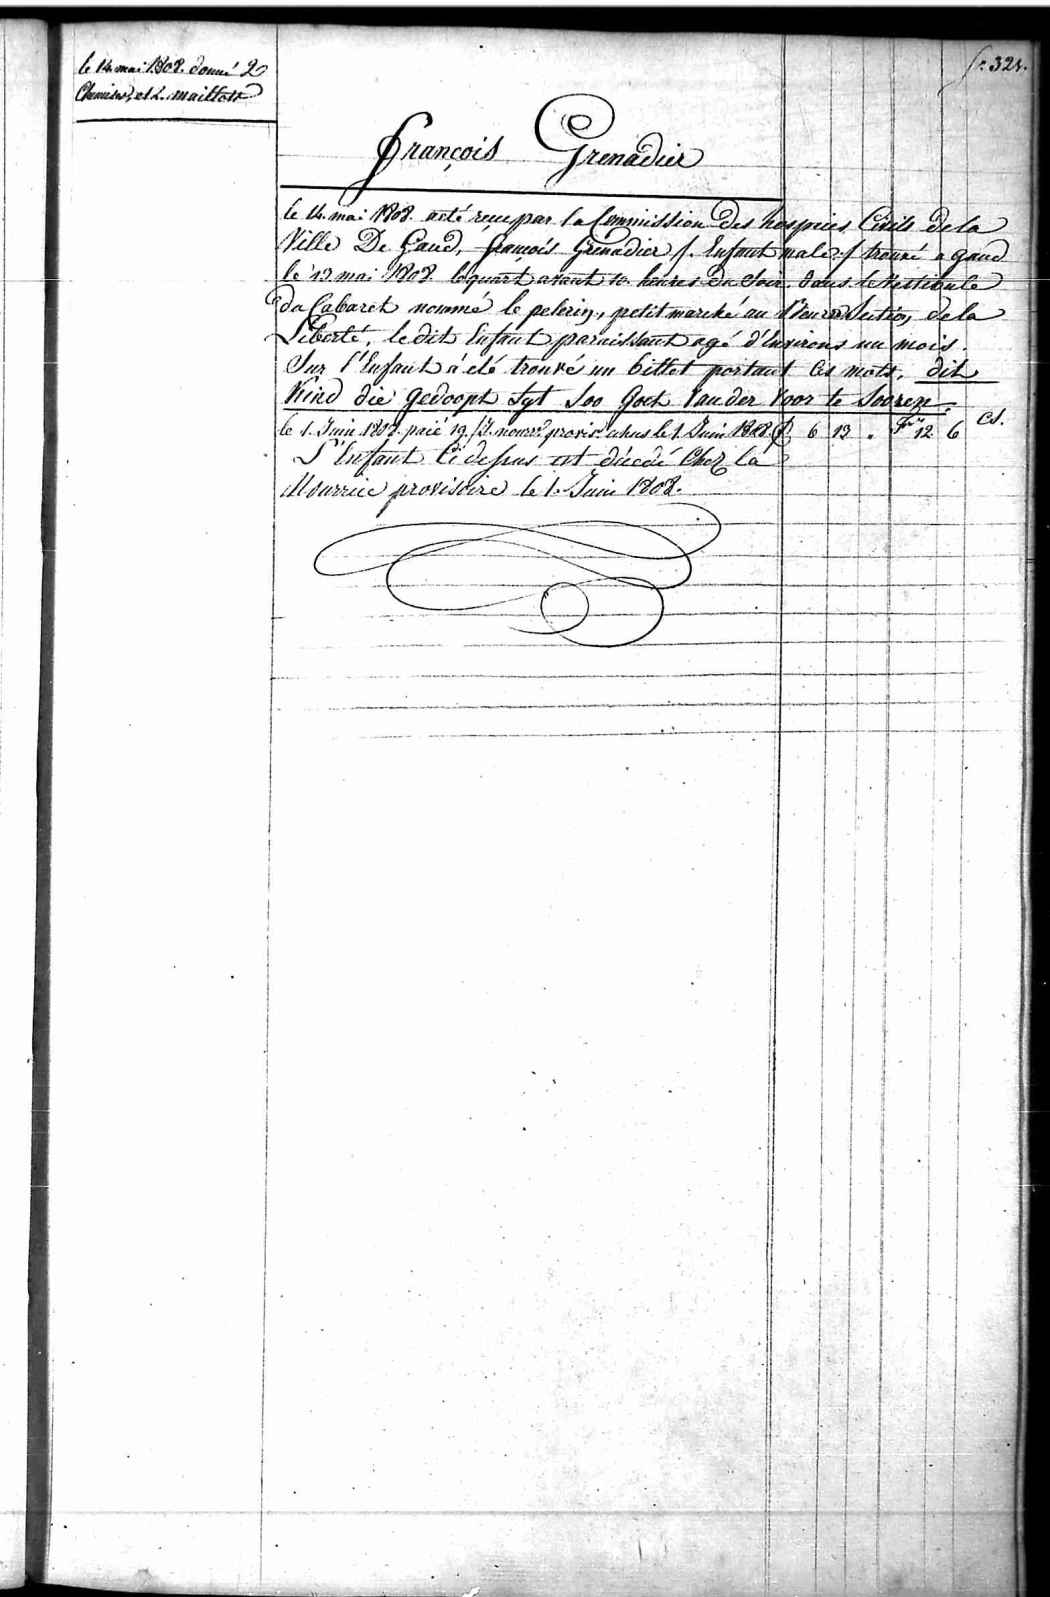 le 14 mai 1808. donné 2
Chemises, et 2. maillots
fo. 324.
François Grenadier
le 14. mai 1808. a été reçu par la Commission des hospices Civils de la
Ville De Gand, françois Grenadier /. Enfant male ./ trouvé a gand
le 13 mai 1808. le quart avant 10. heures du Soir, dans le Vestibule
du Cabaret nommé le pelerin, petit marché au Section de la
Liberté, le dit Enfant paraissant agé d'Environs un mois.
Sur l'Enfant a été trouvé un billet portant Ces mots, dit
Kind die gedoopt Syt Soo Goet Van der Voor te Sooren.
le 1. Juin 1808. paié 19. js. nourre. provisre. echus le 1. Juin 1808. £ 6 13 . Frs 12 6 cs.
L'Enfant Ci dessus est décedé Chez la
Nourrice provisoire le 1. Juin 1808.